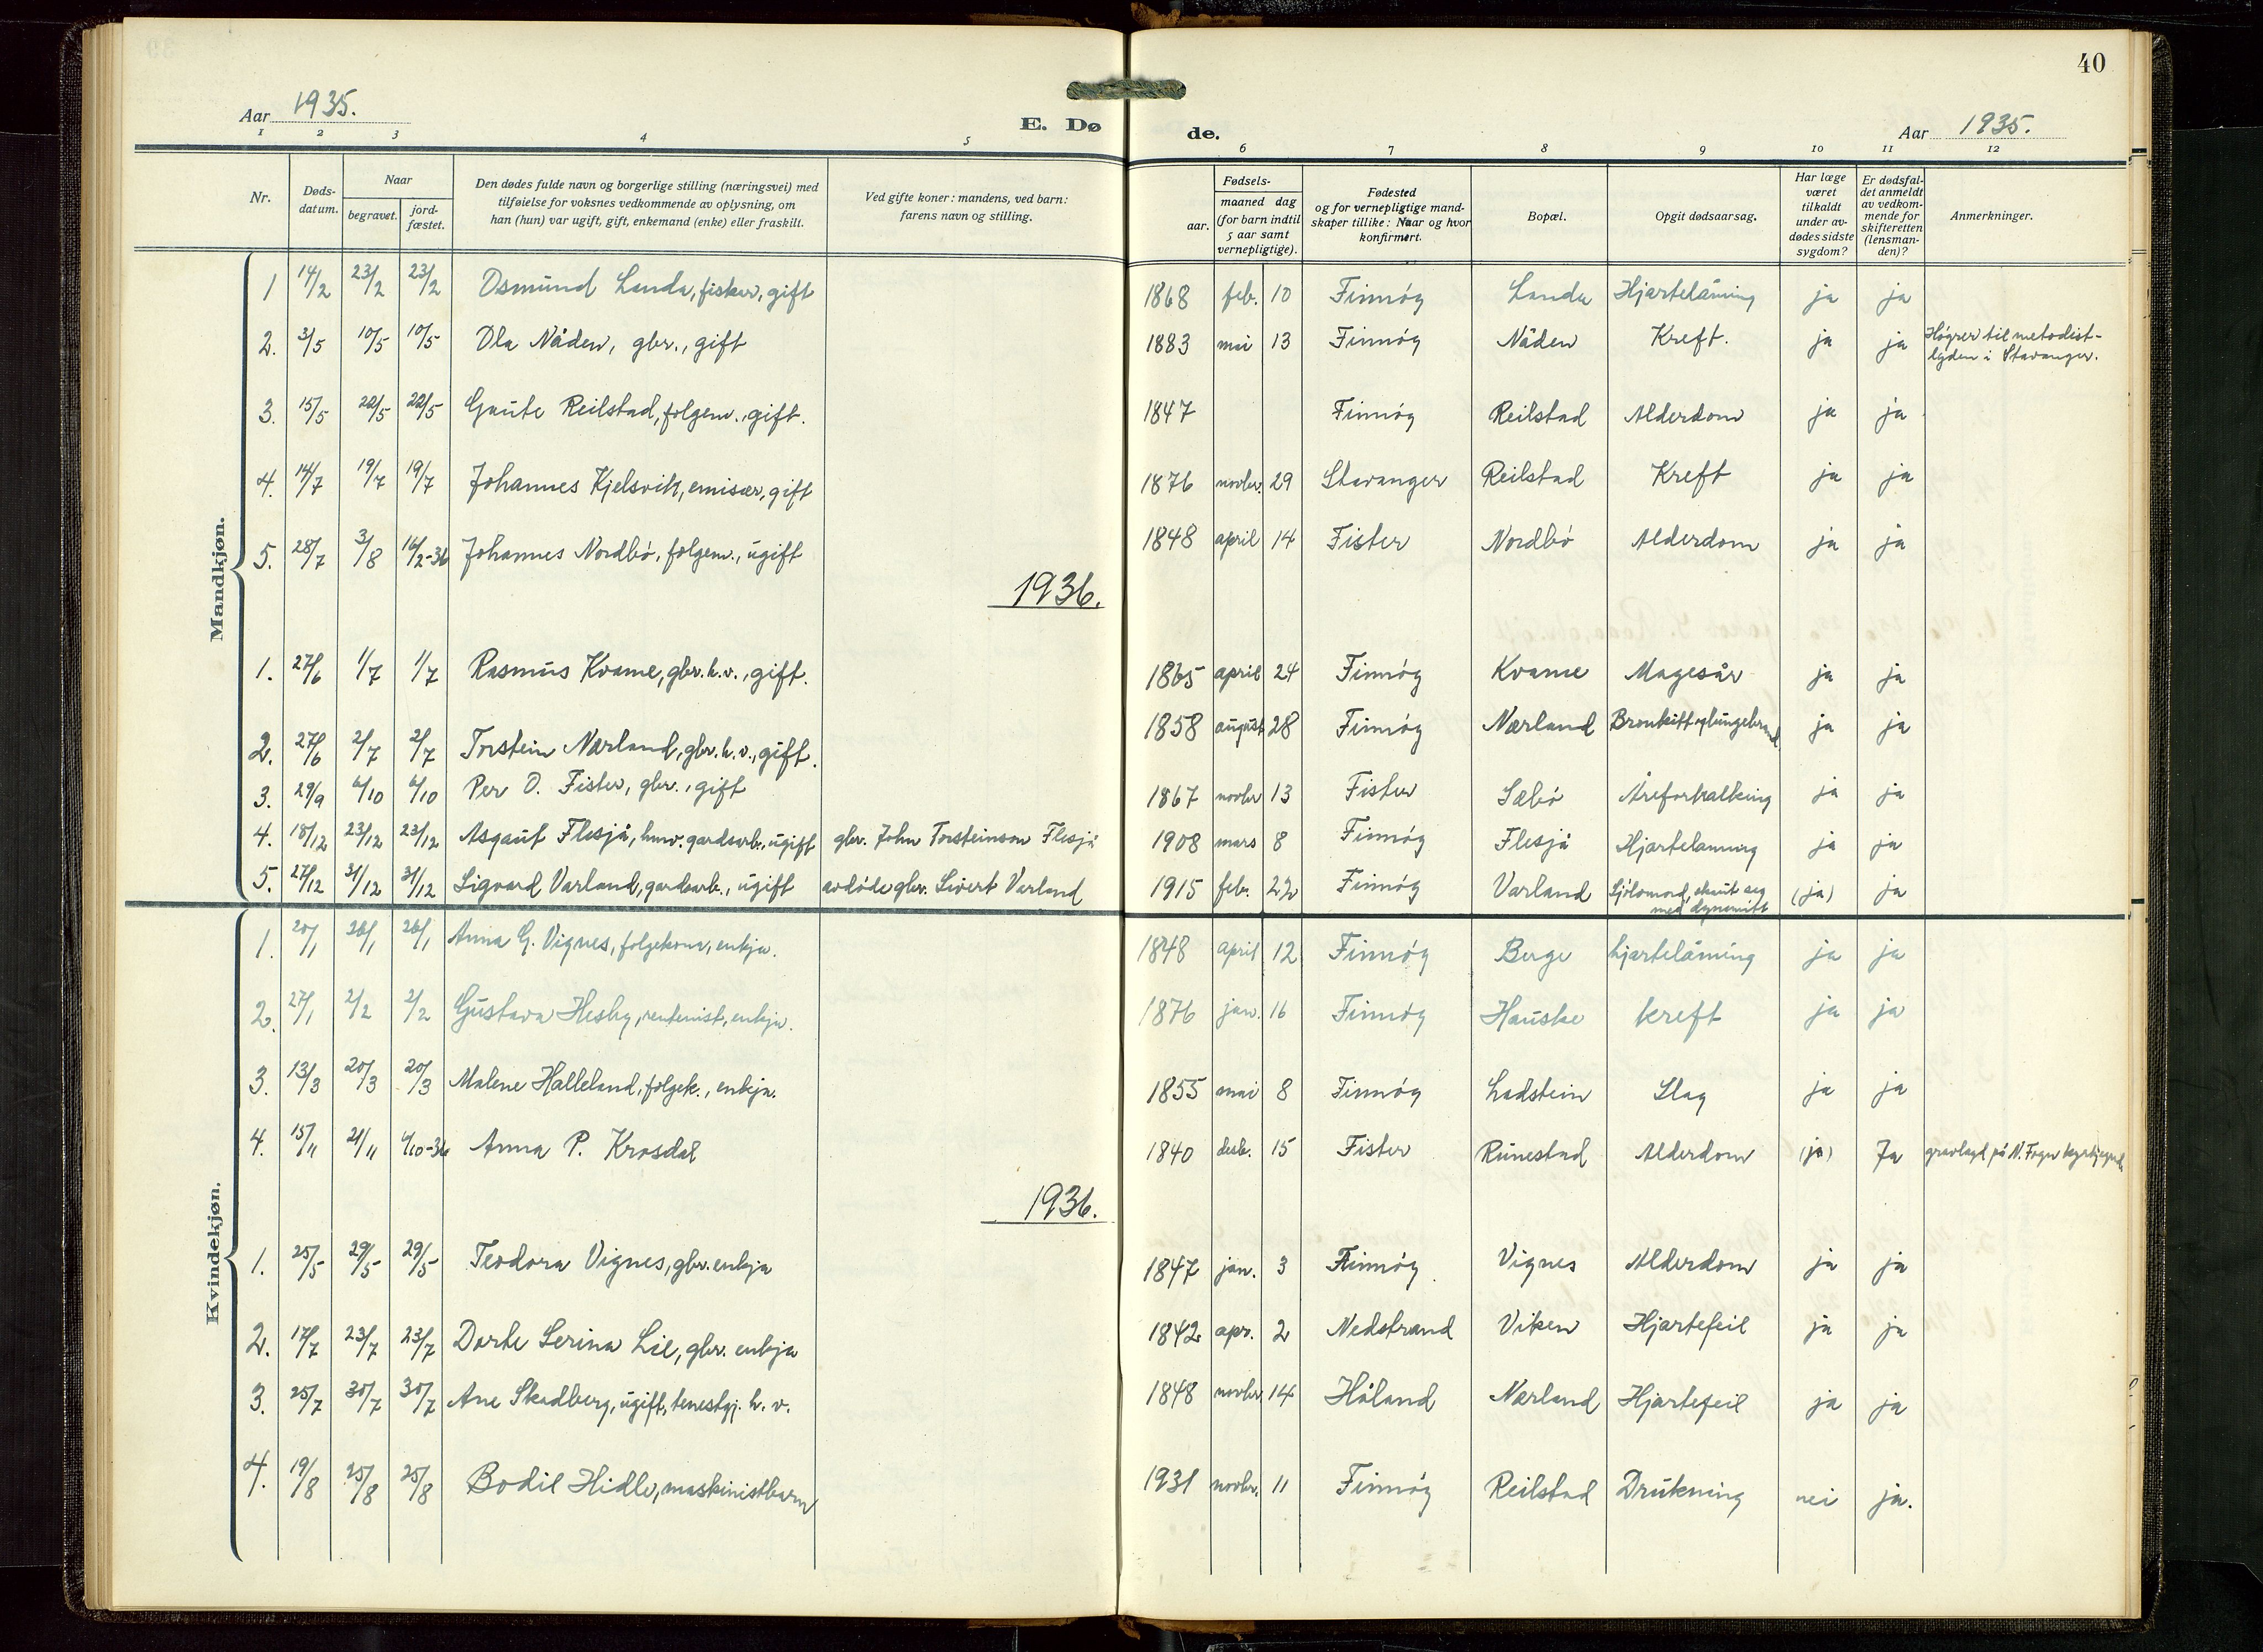 40
Aar 1935.
E. Døde.
Aar 1935.
1 2 3 4 5 6 7 8 9 10 11 12
Nr.
Døds-datum.
Naar
begravet.
jord-fæstet.
Den dødes fulde navn og borgerlige stilling (næringsvei) med
tilføielse for voksnes vedkommende av oplysning, om
han (hun) var ugift, gift, enkemand (enke) eller fraskilt.
Ved gifte koner: mandens, ved barn:
farens navn og stilling.
Fødsels-
aar.
maaned dag
(for barn indtil
5 aar samt
vernepligtige).
Fødested
og for vernepligtige mand-
skaper tillike: Naar og hvor
konfirmert.
Bopæl.
Opgit dødsaarsag.
Har læge
været
tilkaldt
under av-
dødes sidste
sygdom?
Er dødsfal-
det anmeldt
av vedkom-
mende for
skifteretten
(lensman-
den)?
Anmerkninger.
Mandkjøn.
1 14/2 23/2 23/2 Osmund Landa, fisker, gift 1868 feb. 10 Finnøy Landa Hjartelåming ja ja
2. 3/5 10/5 10/5 Ola Nåden, gbr., gift 1883 mai 13 Finnøy Nåden Kreft. ja ja Høyrer til metodist-
lyden i Stavanger.
3. 15/5 22/5 22/5 Gaute Reilstad, folgem., gift. 1847 Finnøy Reilstad Alderdom ja ja
4. 14/7 19/7 19/7 Johannes Kjelsvik, emisær, gift 1876 novbr. 29 Stavanger Reilstad Kreft ja ja
5. 28/7 3/8 16/2-36 Johannes Nordbø, folgem., ugift 1848 april 14 Fister Nordbø Alderdom ja ja
1936.
1. 27/6 1/7 1/7 Rasmus Kvame, gbr. h.v., gift. 1865 april 24 Finnøy Kvame Magesår ja ja
2. 27/6 2/7 2/7 Torstein Nærland, gbr. h.v., gift. 1858 august 28 Finnøy Nærland Bronkitt og lungebrand ja ja
3. 29/9 6/10 6/10 Per O. Fister, gbr., gift 1867 novbr 13 Fister Sæbø Åreforkalking ja ja
4. 18/12 23/12 23/12 Asgaut Flesjå, hmv. gardsarb., ugift gbr. John Torsteinson Flesjå 1908 mars 8 Finnøy Flesjå Hjartelamning ja ja
5. 27/12 31/12 31/12 Sigvard Varland, gardsarb., ugift avdøde gbr. Sivert Varland 1915 feb. 22 Finnøy Varland Sjølvmord, skaut seg
med dynamitt (ja) ja
Kvindekjøn.
1. 20/1 26/1 26/1 Anna G. Vignes, folgekona, enkja. 1848 april 12 Finnøy Berge hjartelåming ja ja
2. 27/1 2/2 2/2 Gustava Hesby, rentenist, enkja. 1876 jan. 16 Finnøy Hauske kreft ja ja
3. 13/3 20/3 20/3 Malene Halleland, folgek., enkja. 1855 mai 8 Finnøy Ladstein Slag ja ja
4. 15/11 21/11 4/10-36 Anna P. Krosdal 1840 desb. 15 Fister Runestad Alderdom (ja) Ja gravlagd på N. Fogn
1936.
1. 25/5 29/5 29/5 Teodora Vignes, gbr. enkja 1847 jan. 3 Finnøy Vignes Alderdom ja ja
2. 17/7 23/7 23/7 Dorte Serina Lie, gbr. enkja 1842 apr. 2 Nedstrand Viken Hjartefeil ja ja
3. 25/7 30/7 30/7 Ane Skadberg, ugift, tenestgj. h.v. 1848 novbr. 14 Håland Nærland Hjartefeil ja ja
4. 19/8 25/8 25/8 Bodil Hidle, maskinistbarn 1931 novbr. 11 Finnøy Reilstad Drukning nei ja.